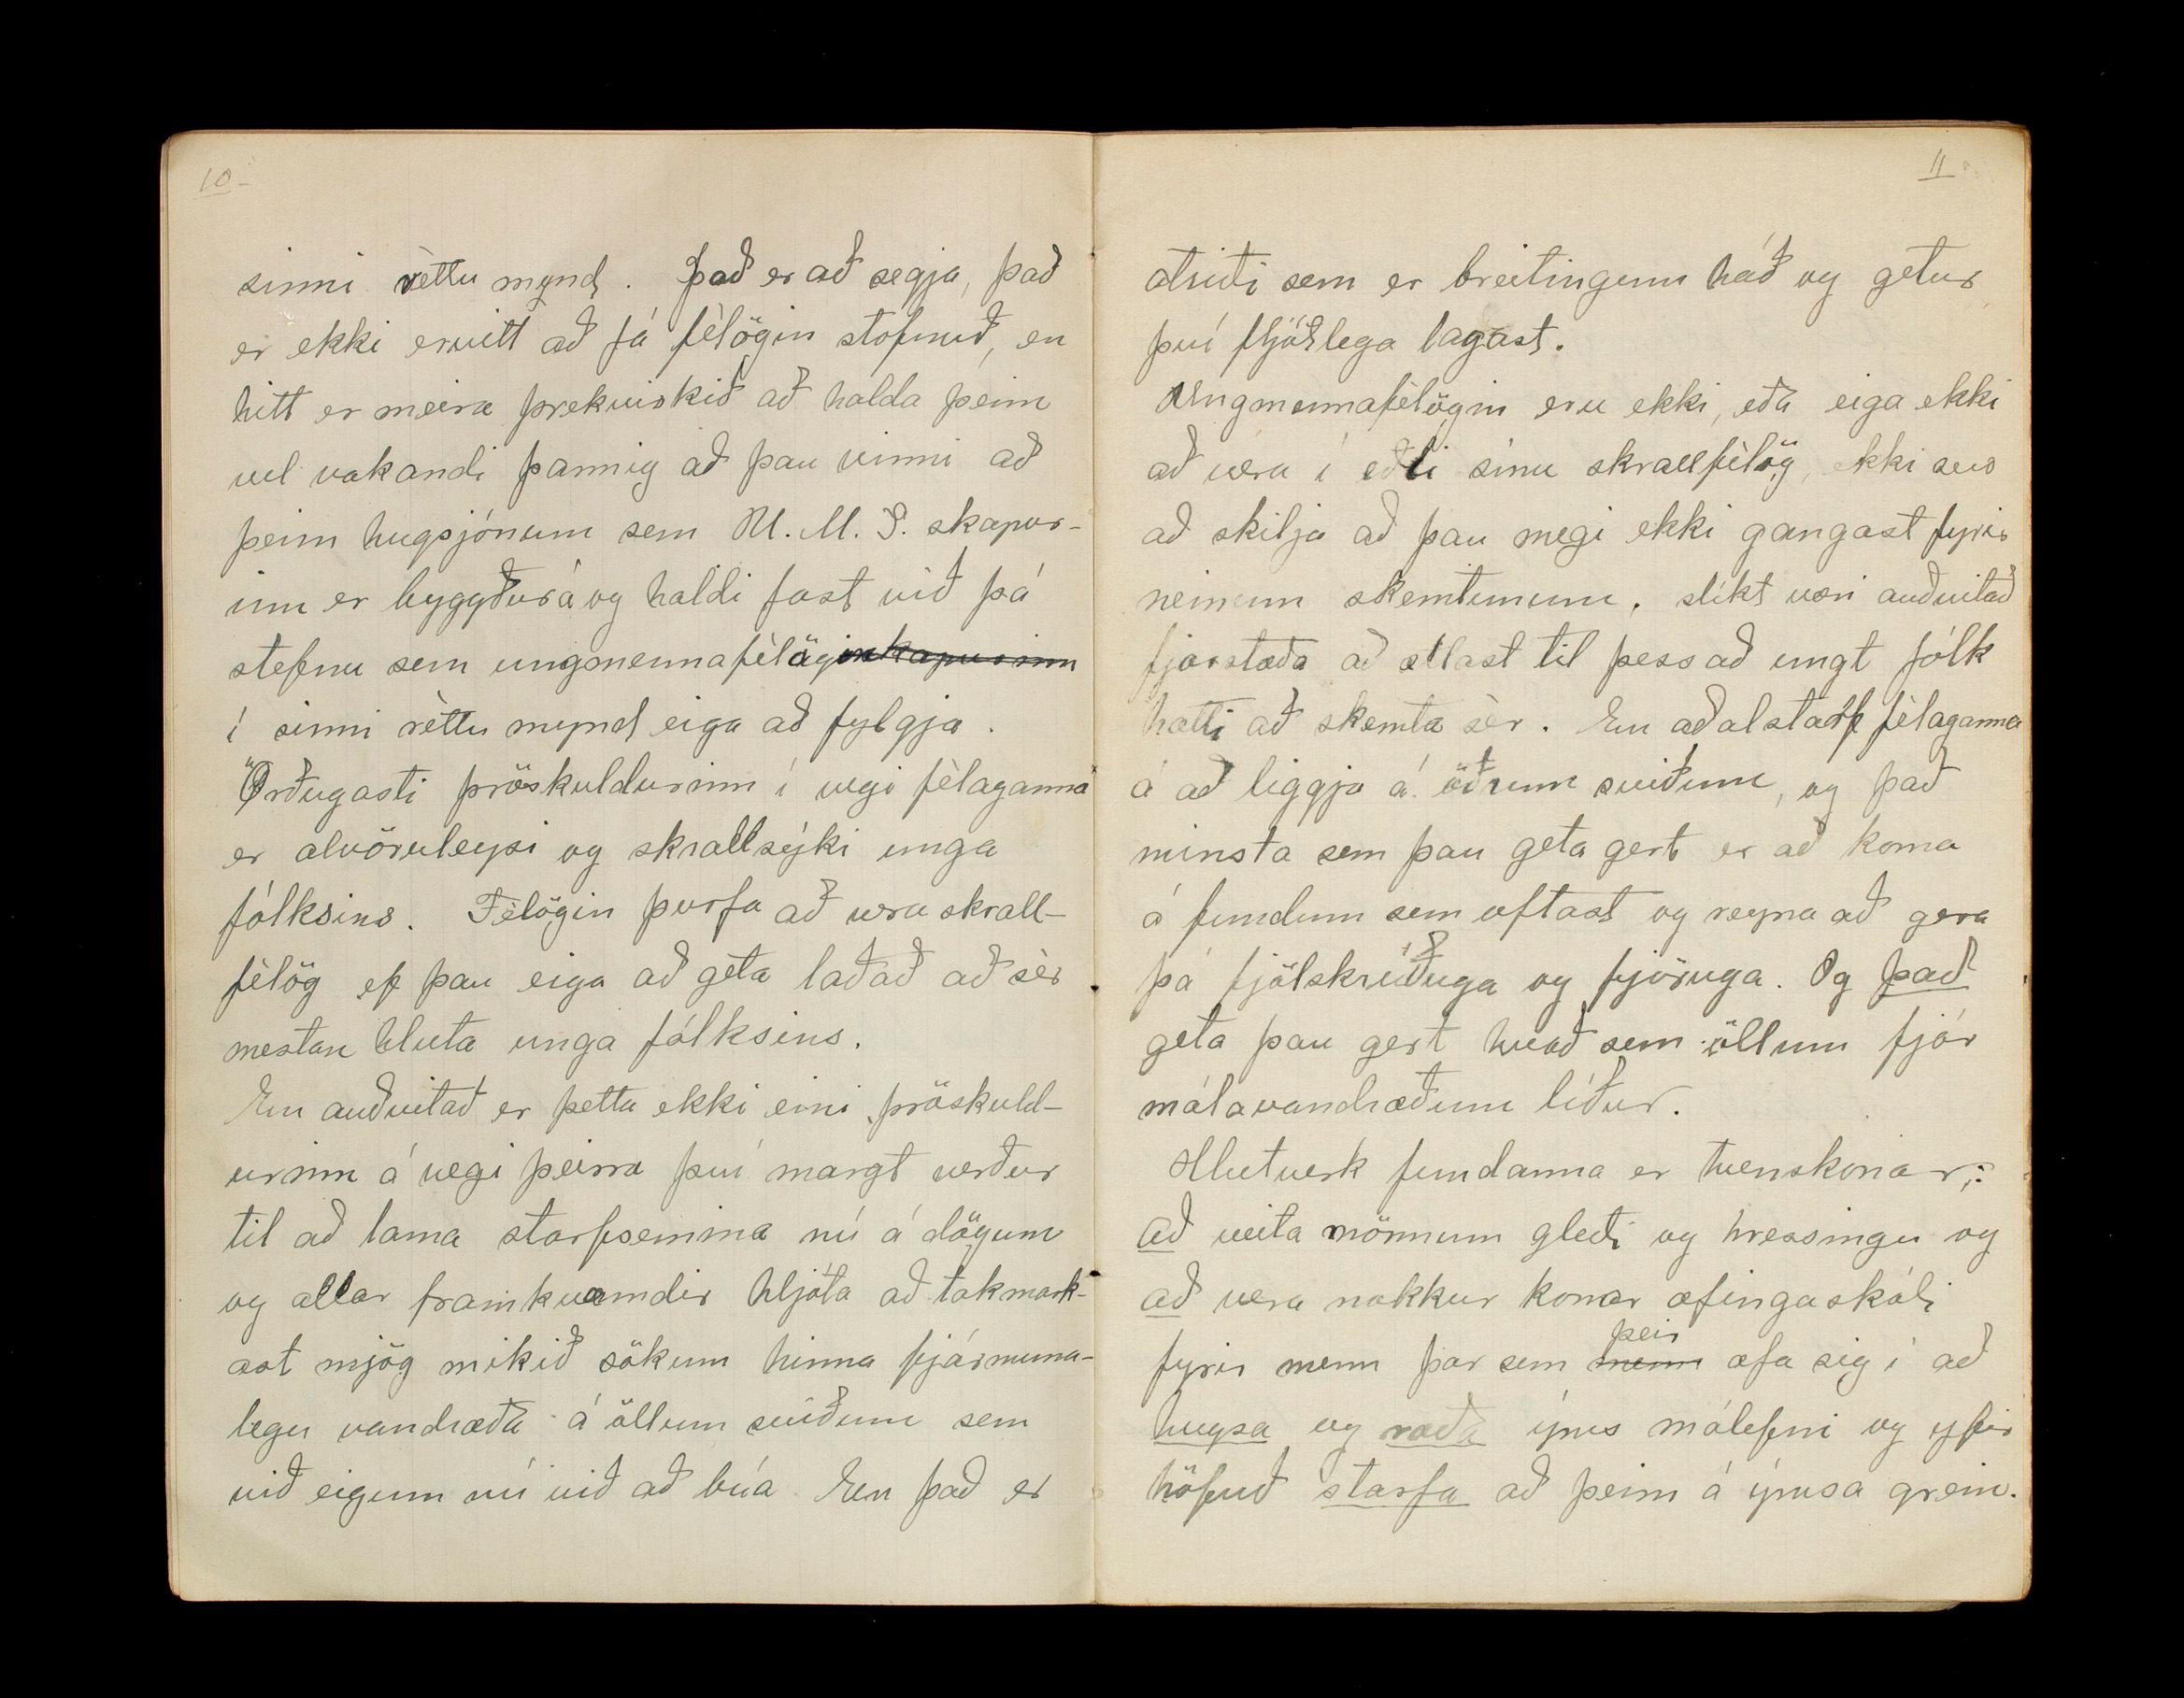 10-
sinni rèttu mynd. það er að segja, það
er ekki ervitt að fá fèlögin stofnuð, en
hitt er meira þrekvirkið að halda þeim
vel vakandi þannig að þau vinni að
þeim hugsjónum sem U. M. F. skapur-
inn er byggður á og haldi fast við þá
stefnu sem ungmennafèlögin skapurinn
í sinni rèttu mynd eiga að fylgja.
Örðugasti þröskuldurinn í vegi fèlaganna
er alvöruleysi og skrallsýki unga
fólksins. Fèlögin þurfa að vera skrall-
fèlög ef þau eiga að geta laðað að sèr
mestan hluta unga fólksins.
En auðvitað er þetta ekki eini þröskuld-
urinn á vegi þeirra því margt verður
til að lama starfsemina nú á dögum
og allar framkvæmdir hljóta að takmark-
ast mjög mikið sökum hinna fjármuna-
legu vandræða á öllum sviðum sem
við eigum nú við að búa. En það er
11
atriði sem er breitingum háð og getur
því fljótlega lagast.
Ungmennafèlögin eru ekki, eða eiga ekki
að vera í eðli sínu skrallfèlög, ekki svo
að skilja að þau megi ekki gangast fyrir
neinum skemtunum. slíkt væri auðvitað
fjarstæða að ætlast til þess að ungt fólk
hætti að skemta sèr. En aðalstarf fèlaganna
á að liggja á öðrum sviðum, og það
minsta sem þau geta gert er að koma
á fundum sem oftast og reyna að gera
þá fjölskrúðuga og fjöruga. Og það
geta þau gert hvað sem öllum fjár
málavandræðum líður.
Hlutverk fundanna er tvenskonar;:
að veita mönnum gleði og hressingu og
að vera nokkur konar æfingaskóli
fyrir menn þar sem menn þeir æfa sig í að
hugsa og ræða ýms málefni og yfir
höfuð starfa að þeim á ýmsa grein.